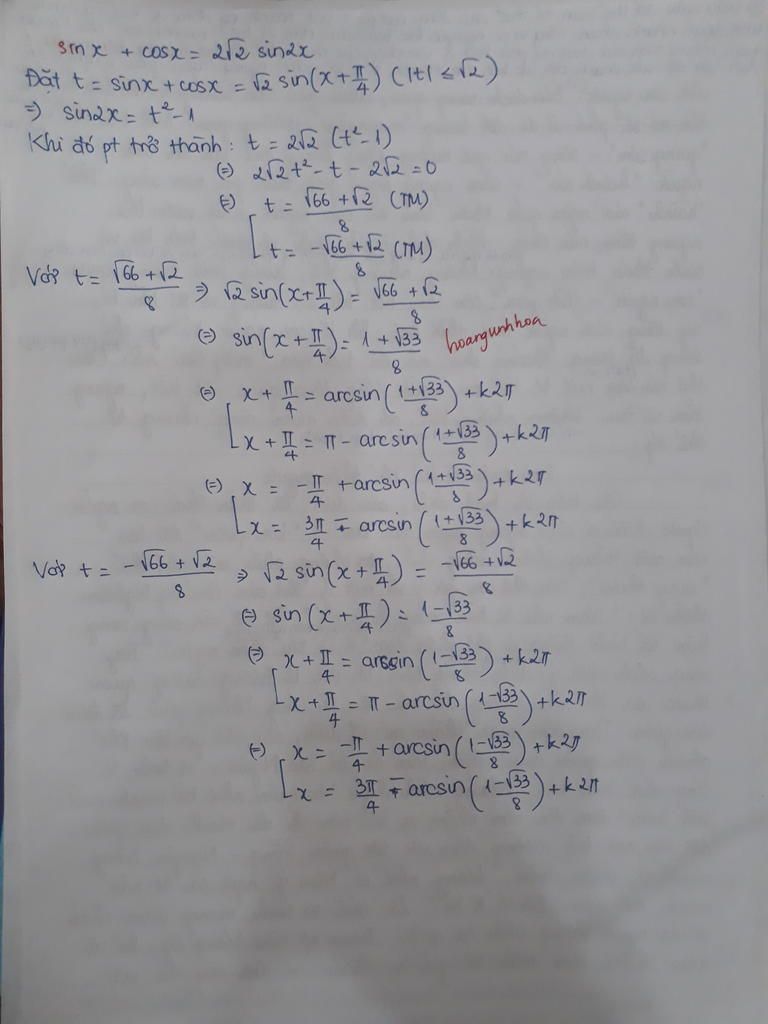 sin x + cosx = 2√2 sin2x
Đặt t = sinx + cosx = √2 sin(x + π/4) (|t| ≤ √2)
⇒ sin2x = t² - 1
Khi đó pt trở thành: t = 2√2 (t² - 1)
(=) 2√2t² - t - 2√2 = 0
(=) [ t = (√66 + √2)/8 (TM)
t = (-√66 + √2)/8 (TM)
Với t = (√66 + √2)/8 ⇒ √2 sin(x + π/4) = (√66 + √2)/8
(=) sin(x + π/4) = (1 + √33)/8 hoangunhhoa
(=) [ x + π/4 = arcsin((1+√33)/8) + k2π
x + π/4 = π - arcsin((1+√33)/8) + k2π
(=) [ x = -π/4 + arcsin((1+√33)/8) + k2π
x = 3π/4 - arcsin((1+√33)/8) + k2π
Với t = (-√66 + √2)/8 ⇒ √2 sin(x + π/4) = (-√66 + √2)/8
(=) sin(x + π/4) = (1-√33)/8
(=) [ x + π/4 = arcsin((1-√33)/8) + k2π
x + π/4 = π - arcsin((1-√33)/8) + k2π
(=) [ x = -π/4 + arcsin((1-√33)/8) + k2π
x = 3π/4 - arcsin((1-√33)/8) + k2π